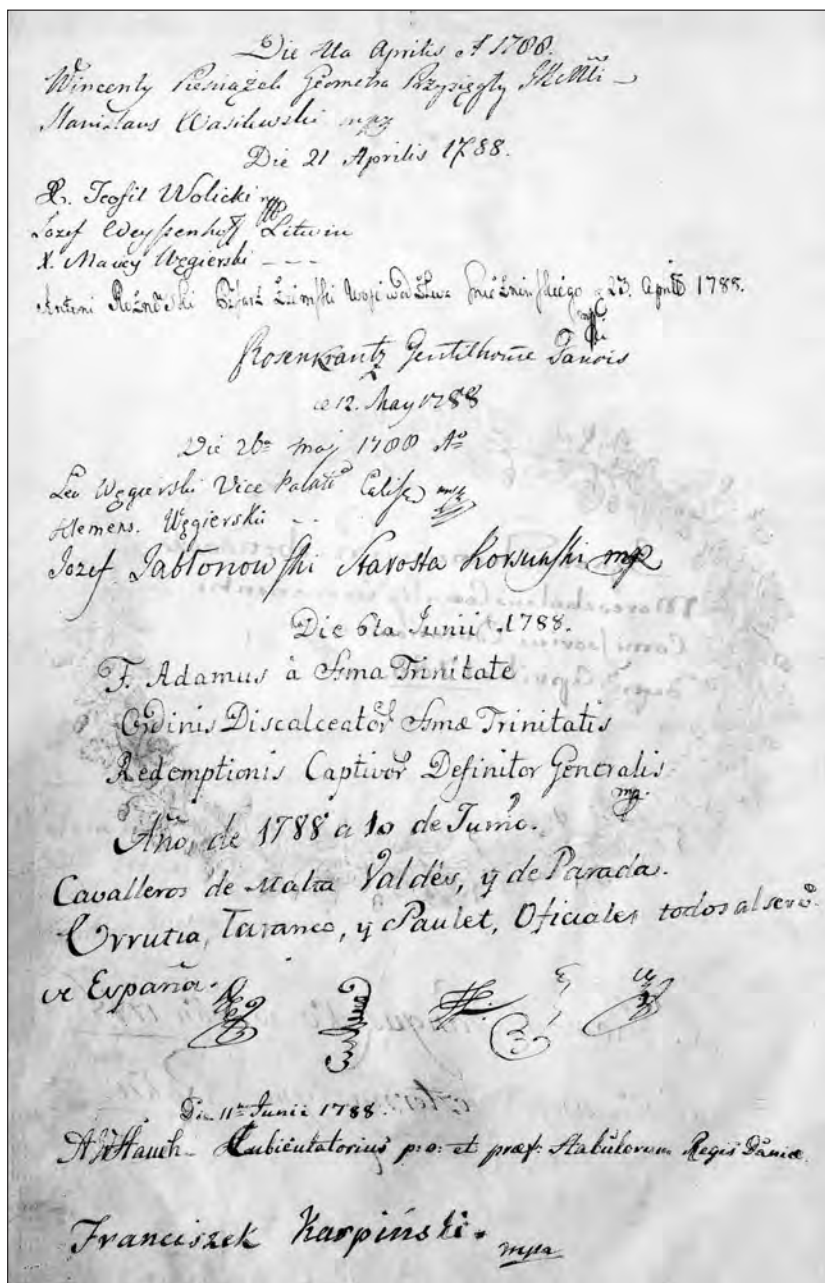 Die 4ta Aprilis A 1788.
Wincenty Pieniążek Geometra Przysięgły
Stanislaus Wasilewski mpp
Die 21 Aprilis 1788.
X. Teofil Wolicki mpp
Jozef Weyssenhoff Litwin
X. Maciey Węgierski - - -
Antoni Rożnowski Ziemski Woiewodztwa Gnieźnińskiego 23. Aprilis 1788.
Rosenkrantz Gentilhome Danois
ce 12. May 1788
Die 26ta maj 1788 Ao
Leo Węgierski Vice Palat Calis mpp
Klemens. Węgierski - -
Jozef Jabłonowski Starosta Korsuński mpp
Die 6ta Junii 1788.
F. Adamus à Ssma Trinitate
Ordinis Discalceator Ssmæ Trinitatis
Redemptionis Captivor Definitor Generalis
mp.
Año, de 1788 a 10 de Junio.
Cavalleros de Malta Valdés, y de Parada.
Urrutia, Taranco, y Paulet, Oficiales todos al servo.
de España.
Die 11ta Junii 1788.
AWHauch Cubiculatorius p: o: et præf: Stabulorum Regis Daniæ.
Franciszek Karpiński. mpa